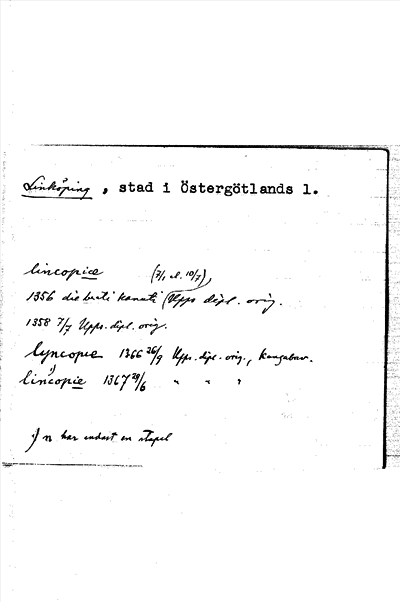 Linköping, stad i Östergötlands l.
lincopice (7/1 el. 10/7),
1356 die beati kanuti (Upps. dipl. orig.
1358 7/7 Upps. dipl. orig.
lyncopie 1366 26/9 Upps. dipl. orig.,
lincopie 1) 1367 29/6 " " "
1) n har endast en stapel